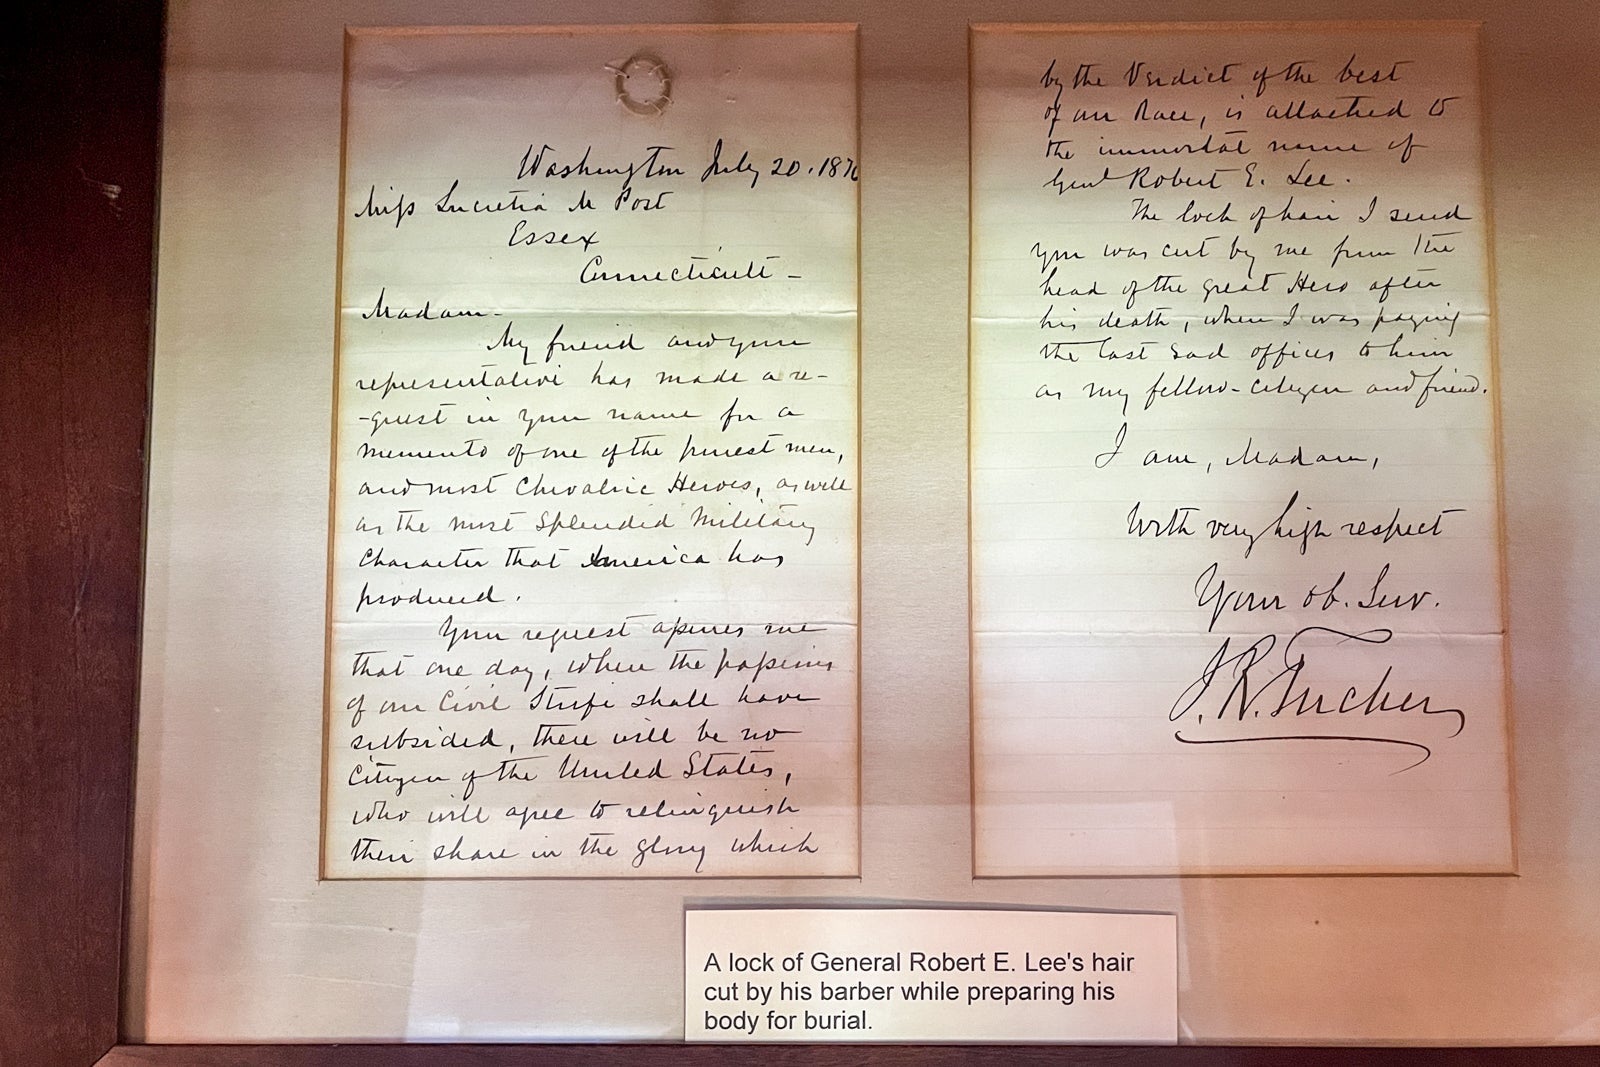 Washington July 20. 187
Miss Lucretia M Post
Essex
Connecticutt -
Madam -
My friend and your
representative has made a re-
-quest in your name for a
memento of one of the purest men,
and most Chivalric Heroes, as well
as the most splendid Military
Character that America has
produced.
Your request assures me
that one day, when the passions
of our Civil Strife shall have
subsided, there will be no
Citizen of the United States,
who will agree to relinquish
their share in the glory which
by the Verdict of the best
of our Race, is attached to
the immortal name of
Genl Robert E. Lee.
The lock of hair I send
you was cut by me from the
head of the great Hero after
his death, when I was paying
the last sad offices to him
as my fellow-citizen and friend.
I am, Madam,
With very high respect
Your ob. Serv.
J. R. Tucker
A lock of General Robert E. Lee's hair
cut by his barber while preparing his
body for burial.